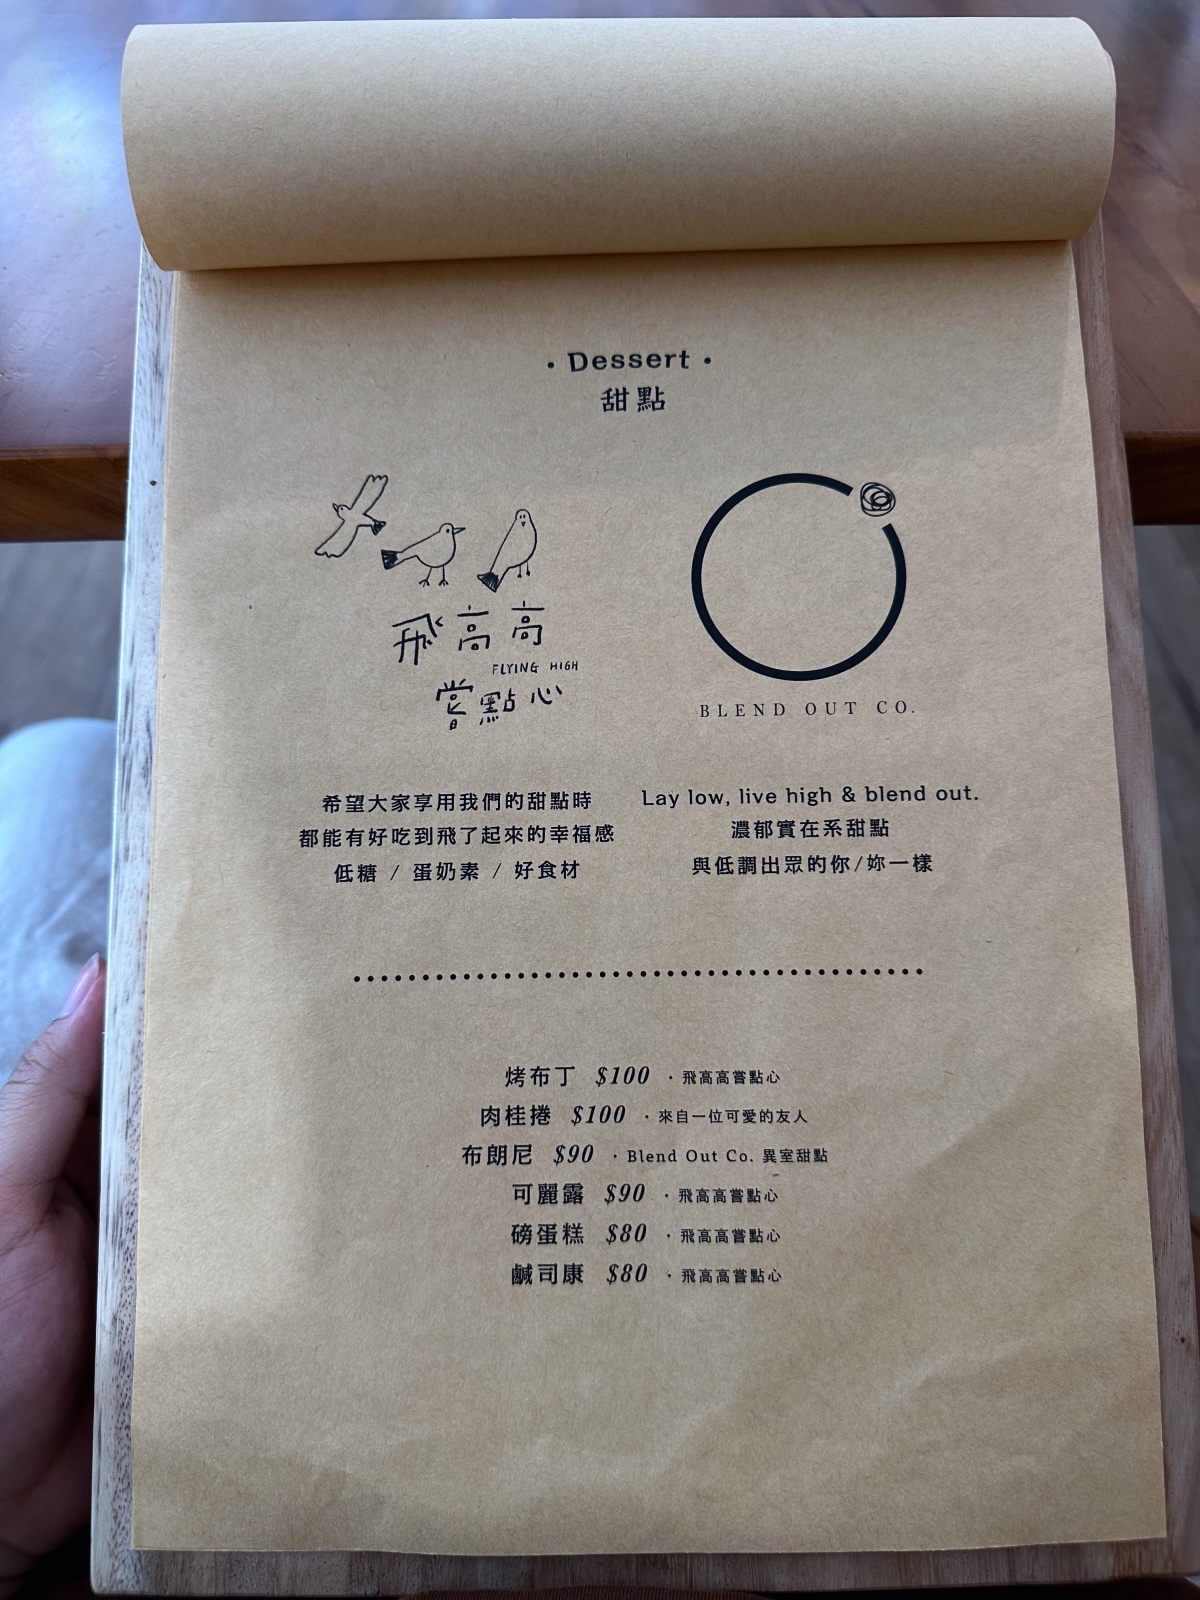 · Dessert ·
甜點
飛高高
FLYING HIGH
嘗點心
BLEND OUT CO.
希望大家享用我們的甜點時
都能有好吃到飛了起來的幸福感
低糖 / 蛋奶素 / 好食材
Lay low, live high & blend out.
濃郁實在系甜點
與低調出眾的你/妳一樣
烤布丁 $100 · 飛高高嘗點心
肉桂捲 $100 · 來自一位可愛的友人
布朗尼 $90 · Blend Out Co. 異室甜點
可麗露 $90 · 飛高高嘗點心
磅蛋糕 $80 · 飛高高嘗點心
鹹司康 $80 · 飛高高嘗點心